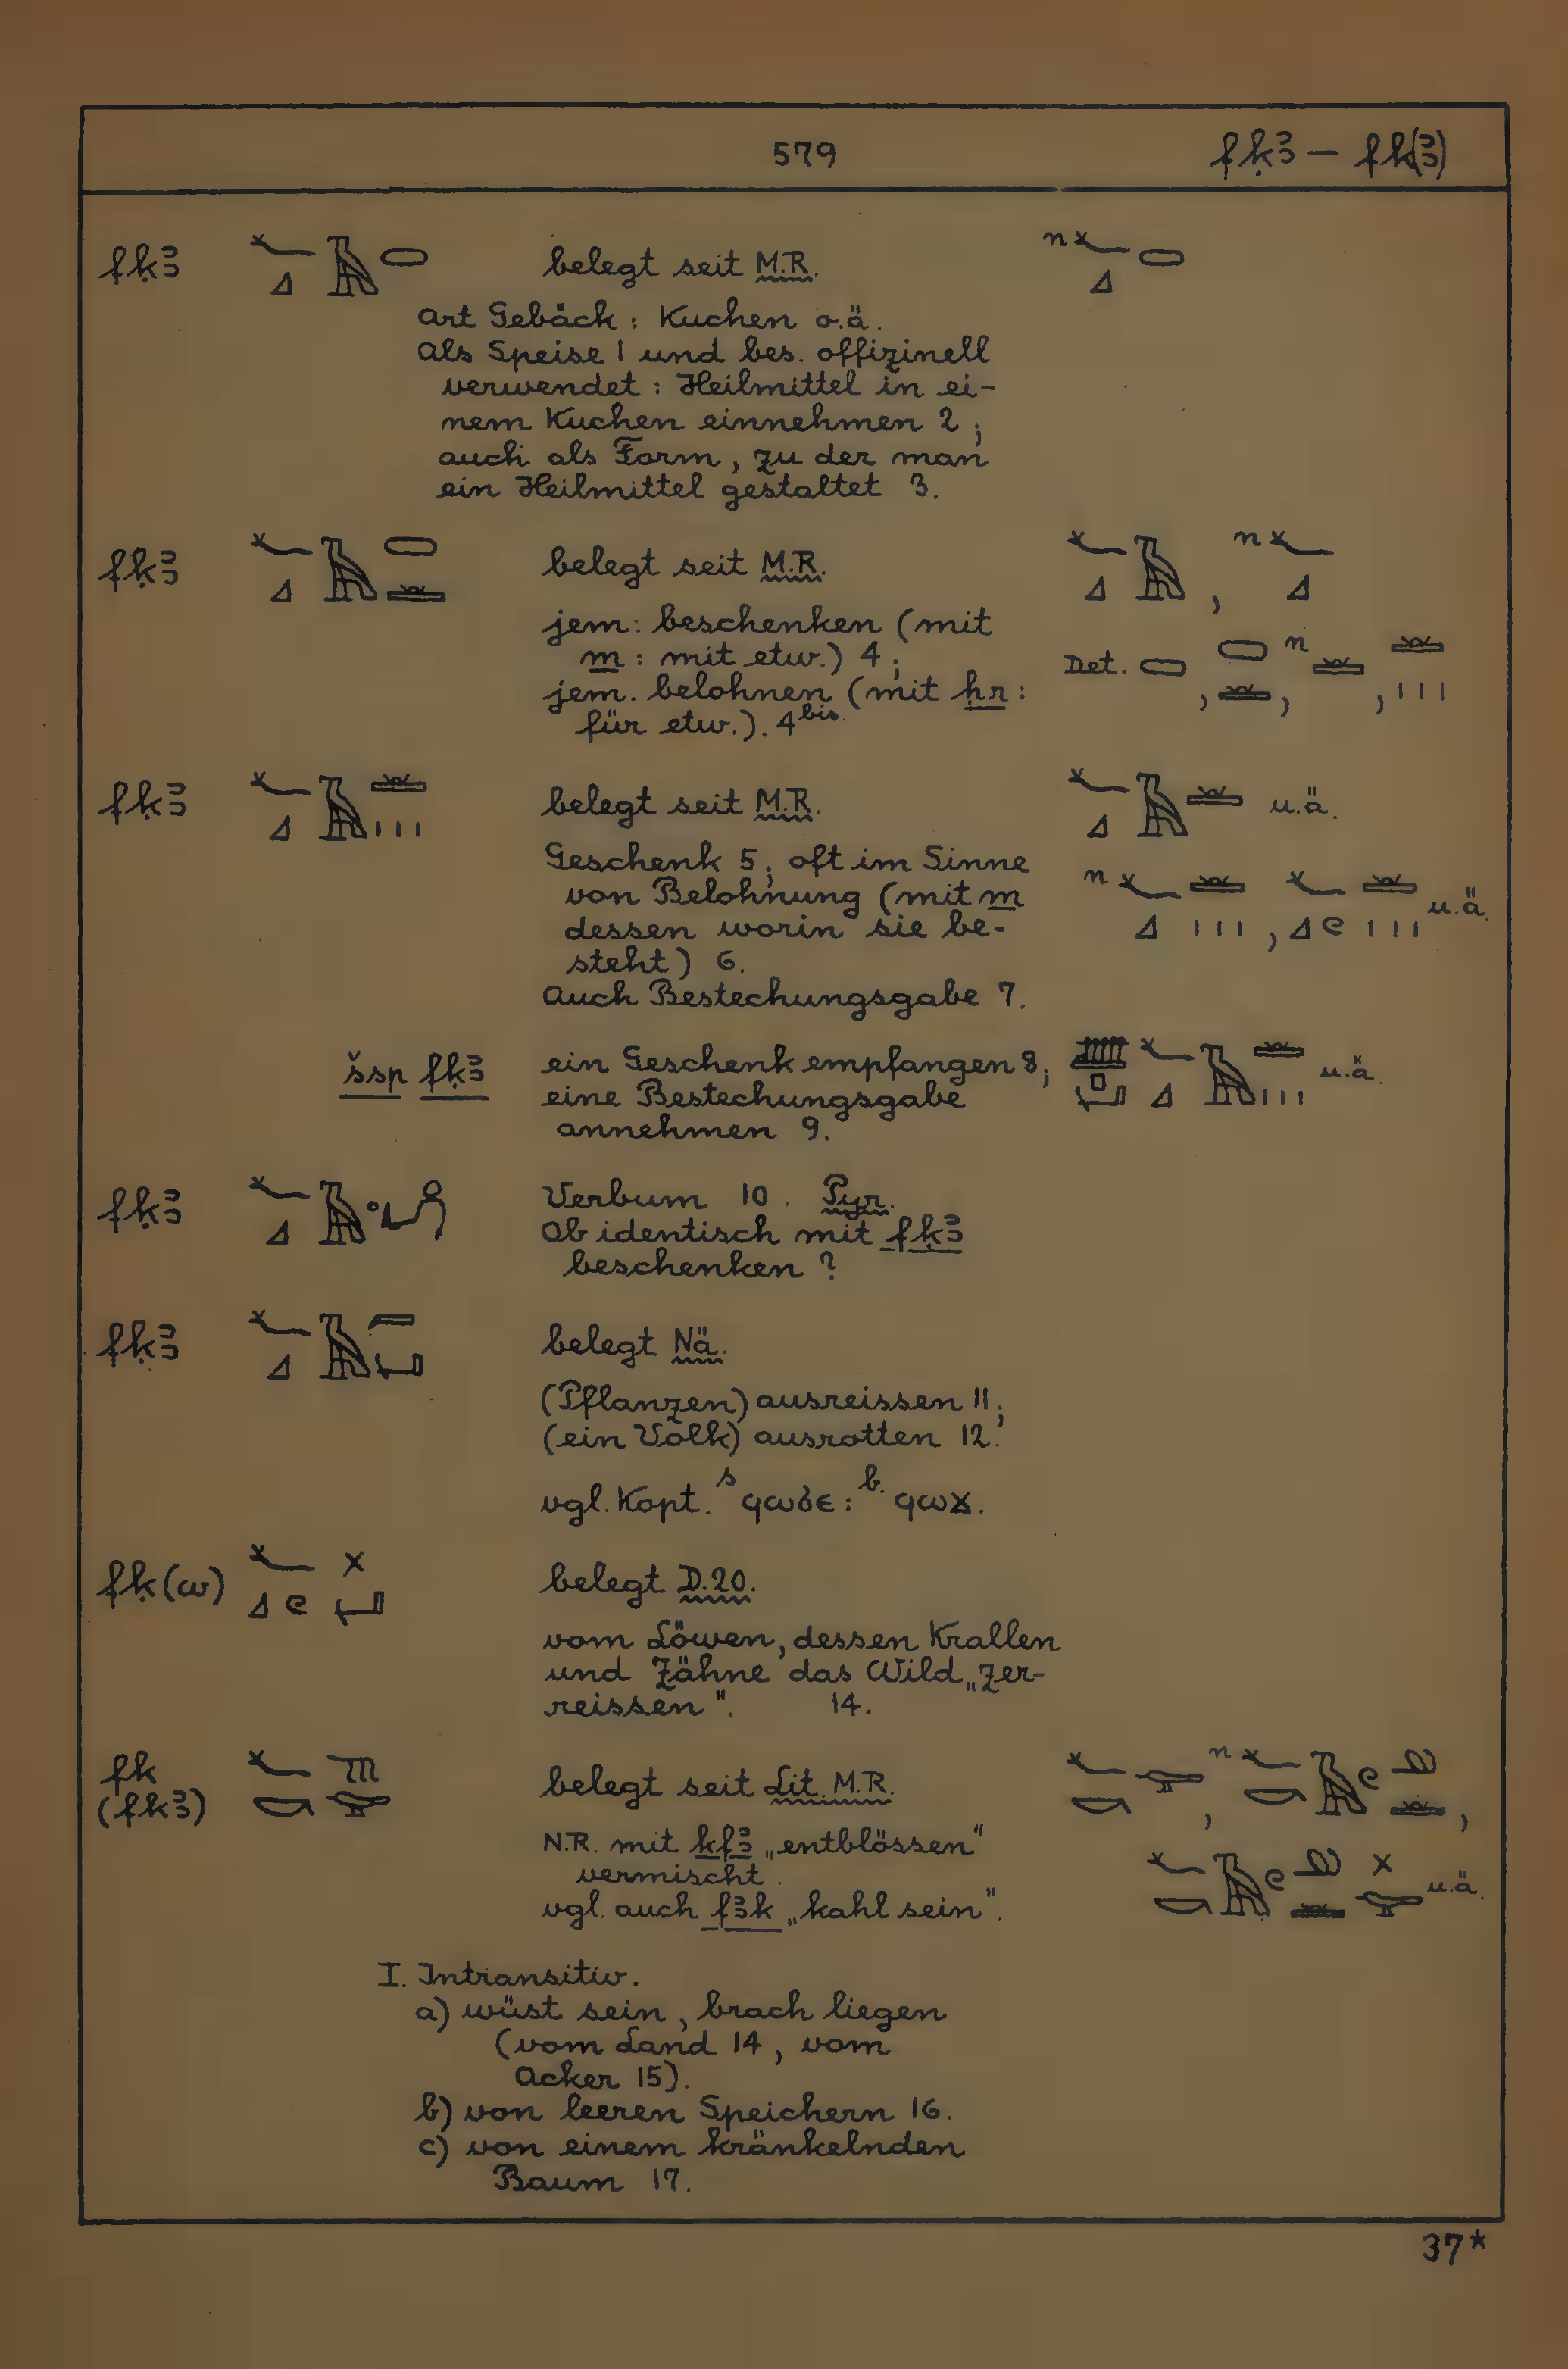 579 fḳꜣ – fk(ꜣ)
fḳꜣ 𓆑𓈎𓄿𓏒 belegt seit M.R. n 𓆑𓈎𓏒
Art Gebäck : Kuchen o.ä.
Als Speise 1 und bes. offizinell
verwendet : Heilmittel in ei-
nem Kuchen einnehmen 2 ;
auch als Form, zu der man
ein Heilmittel gestaltet 3.
fḳꜣ belegt seit M.R. , n
jem: beschenken (mit
m : mit etw.) 4 ; Det. , , n , 
jem. belohnen (mit ḥr :
für etw.). 4bis.
fḳꜣ belegt seit M.R. u.ä.
Geschenk 5 ; oft im Sinne
von Belohnung (mit m n , u.ä.
dessen worin sie be-
steht) 6.
Auch Bestechungsgabe 7.
šsp fḳꜣ ein Geschenk empfangen 8 ; u.ä.
eine Bestechungsgabe
annehmen 9.
fḳꜣ Verbum 10 . Pyr.
Ob identisch mit fḳꜣ
beschenken ?
fḳꜣ belegt Nä.
(Pflanzen) ausreissen 11 ;
(ein Volk) ausrotten 12.
vgl. Kopt. s ϥωϭⲉ : b. ϥωϫ.
fḳ(w) belegt D.20.
vom Löwen, dessen Krallen
und Zähne das Wild „zer-
reissen“. 14.
fk
(fkꜣ) belegt seit Lit. M.R. , n ,
N.R. mit kfꜣ „entblössen“
vermischt . u.ä.
vgl. auch fꜣk „kahl sein“.
I. Intransitiv.
a) wüst sein , brach liegen
(vom Land 14 , vom
Acker 15).
b) von leeren Speichern 16.
c) von einem kränkelnden
Baum 17.
37*